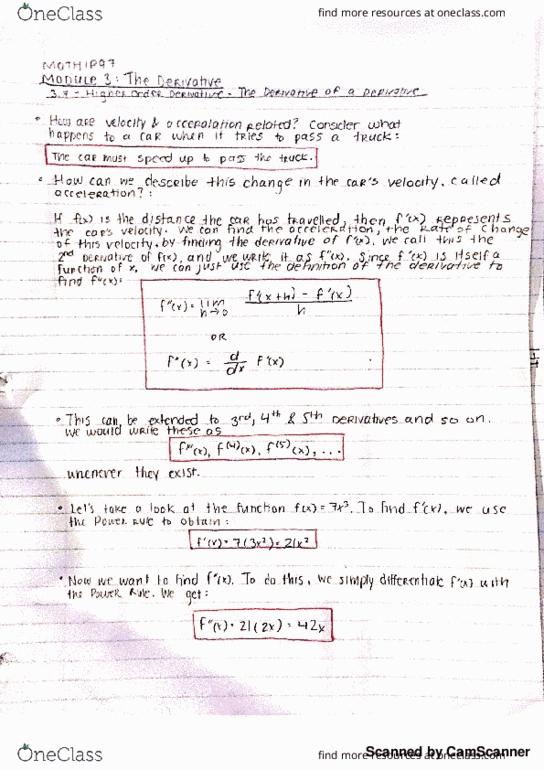 OneClass
find more resources at oneclass.com
MATH1P97
Module 3: The Derivative
3.4 - Higher Order Derivative - The Derivative of a Derivative
• How are velocity & acceleration related? Consider what
happens to a car when it tries to pass a truck:
The car must speed up to pass the truck.
• How can we describe this change in the car's velocity, called
acceleration?:
If f(x) is the distance the car has travelled, then f'(x) represents
the car's velocity. We can find the acceleration, the rate of change
of this velocity, by finding the derivative of f'(x). We call this the
2nd derivative of f(x), and we write it as f"(x). Since f'(x) is itself a
function of x, we can just use the definition of the derivative to
find f"(x):
f"(x) = lim h→0 f'(x+h) - f'(x) / h
OR
f"(x) = d/dx f'(x)
• This can be extended to 3rd, 4th & 5th derivatives and so on.
We would write these as
f'''(x), f⁽⁴⁾(x), f⁽⁵⁾(x), ...
whenever they exist.
• Let's take a look at the function f(x) = 7x³. To find f'(x), we use
the Power Rule to obtain:
f'(x) = 7(3x²) = 21x²
• Now we want to find f"(x). To do this, we simply differentiate f'(x) with
the Power Rule. We get:
f"(x) = 21(2x) = 42x
OneClass
find more resources at oneclass.com
Scanned by CamScanner